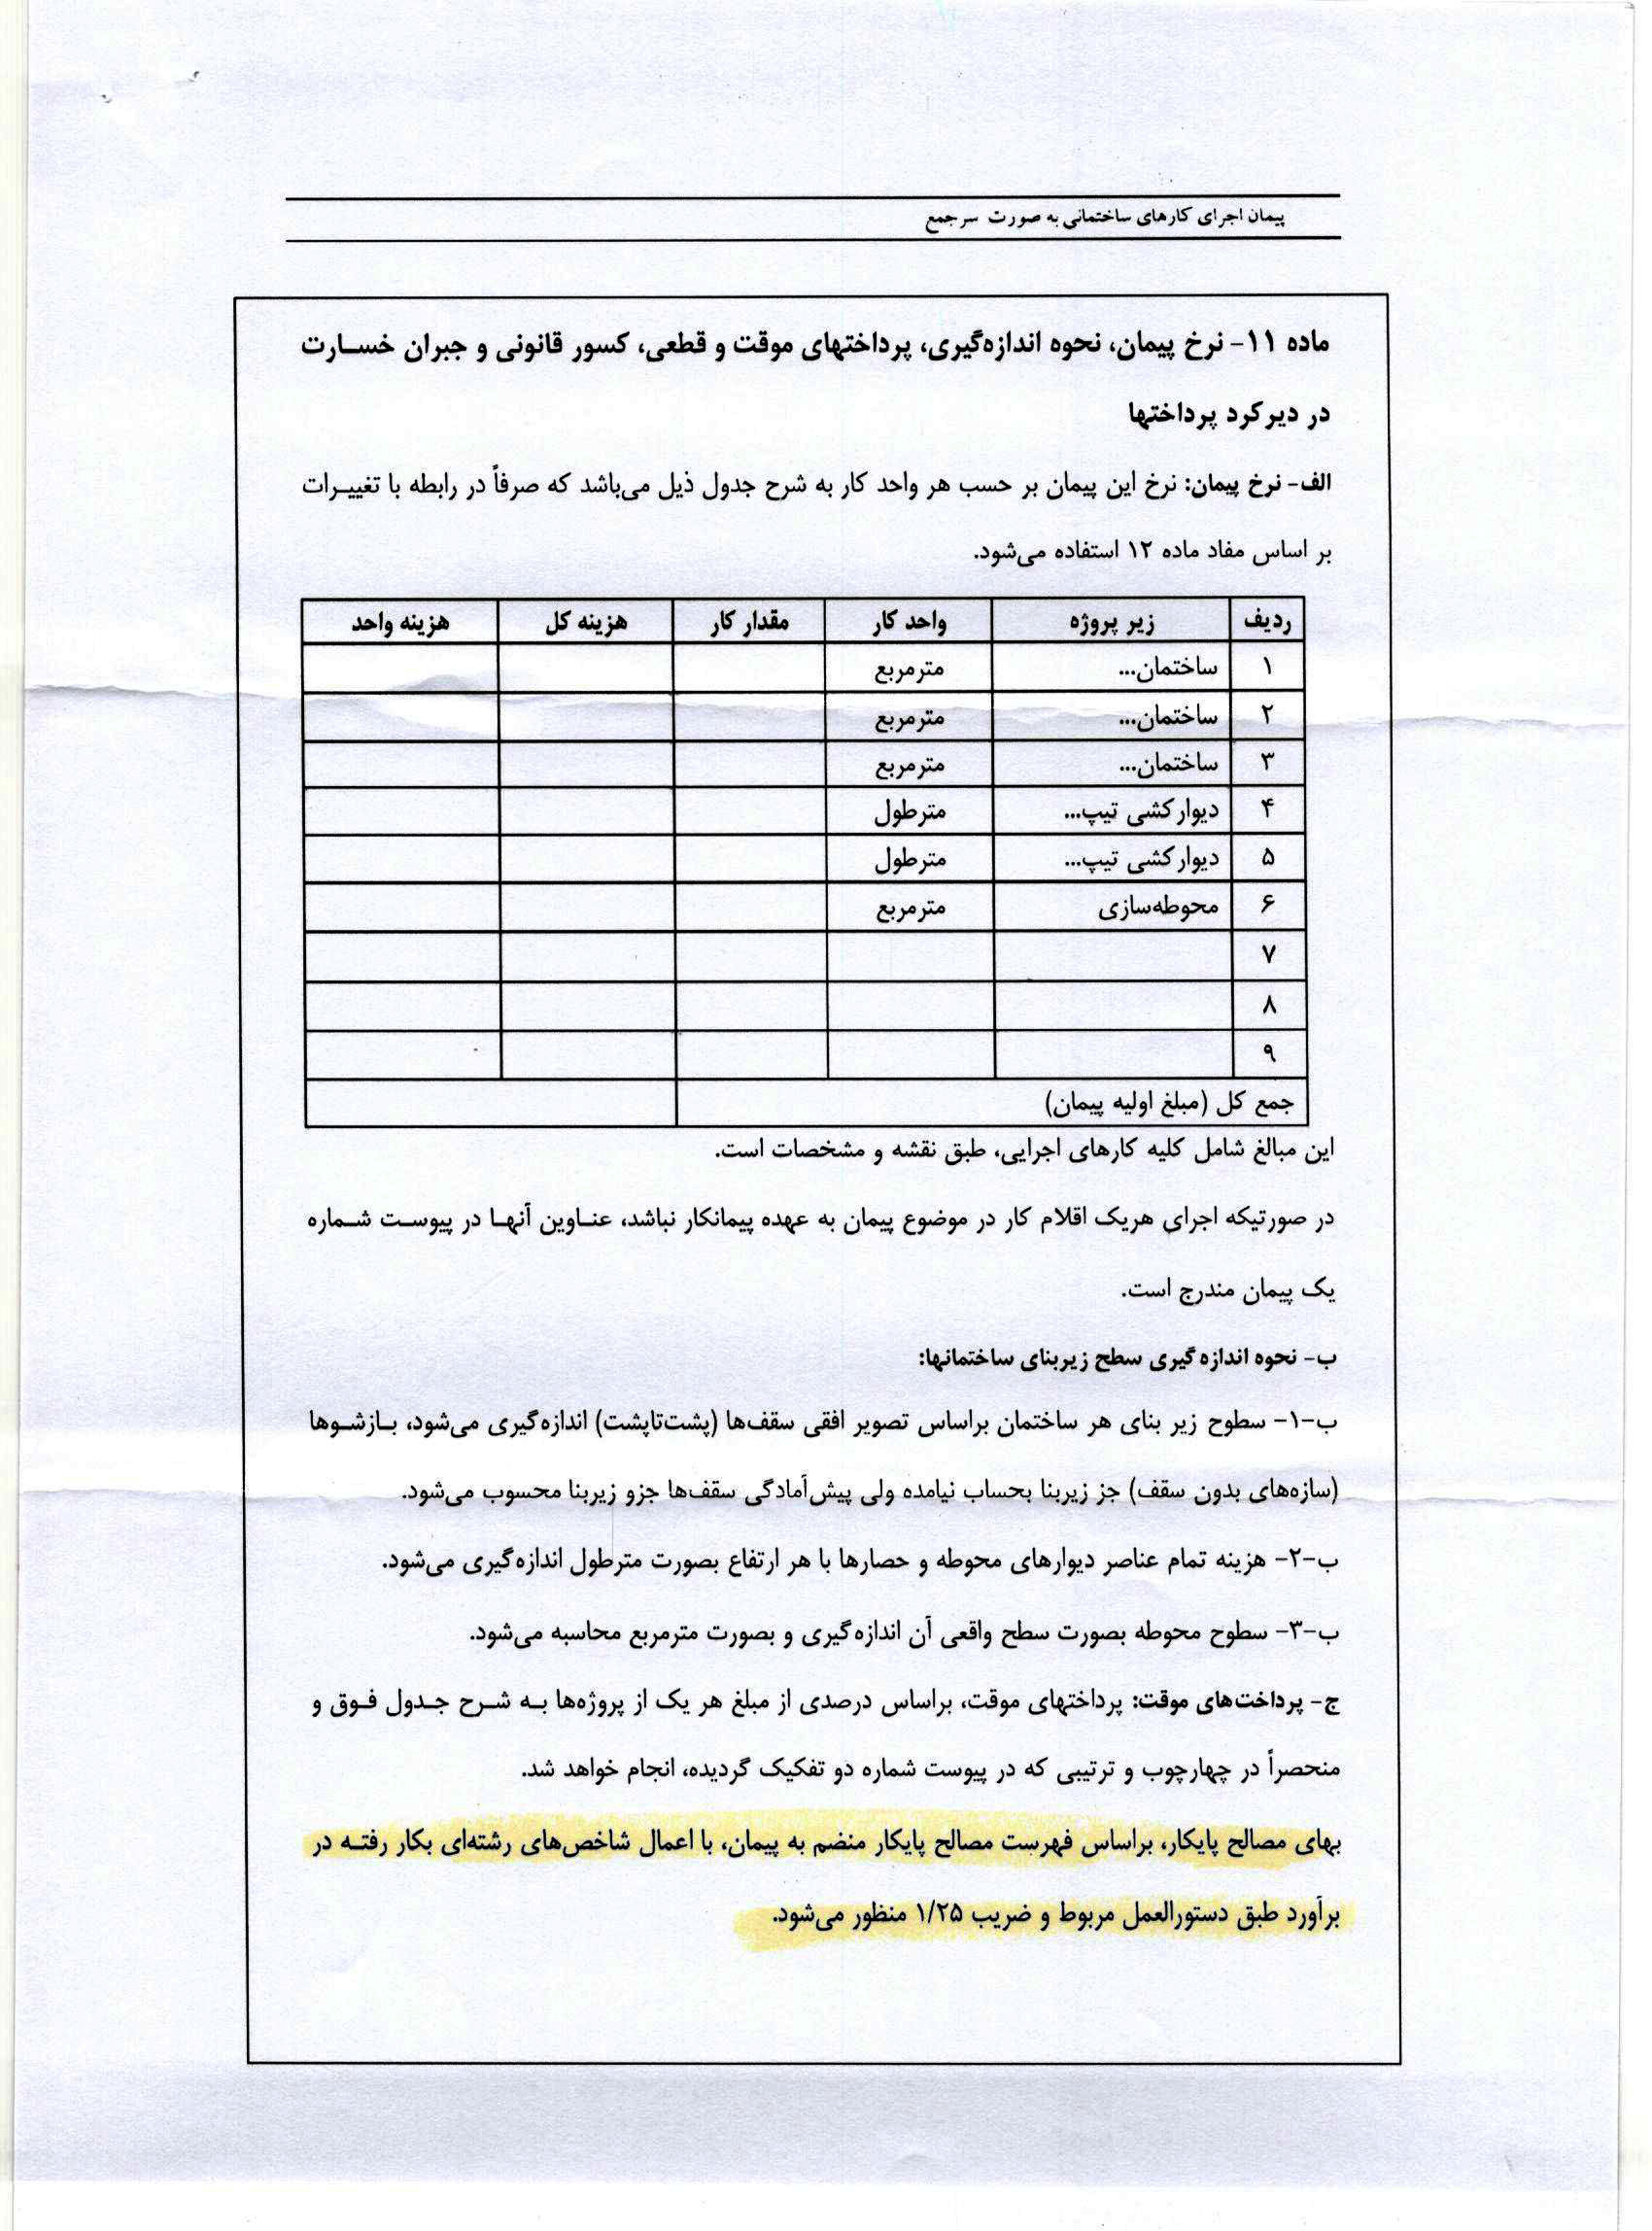 پیمان اجرای کارهای ساختمانی به صورت سرجمع
ماده ۱۱- نرخ پیمان، نحوه اندازه‌گیری، پرداختهای موقت و قطعی، کسور قانونی و جبران خسـارت
در دیرکرد پرداختها
الف- نرخ پیمان: نرخ این پیمان بر حسب هر واحد کار به شرح جدول ذیل می‌باشد که صرفاً در رابطه با تغییـرات
بر اساس مفاد ماده ۱۲ استفاده می‌شود.
ردیف زیر پروژه واحد کار مقدار کار هزینه کل هزینه واحد
۱ ساختمان... مترمربع
۲ ساختمان... مترمربع
۳ ساختمان... مترمربع
۴ دیوارکشی تیپ... مترطول
۵ دیوارکشی تیپ... مترطول
۶ محوطه‌سازی مترمربع
۷
۸
۹
جمع کل (مبلغ اولیه پیمان)
این مبالغ شامل کلیه کارهای اجرایی، طبق نقشه و مشخصات است.
در صورتیکه اجرای هریک اقلام کار در موضوع پیمان به عهده پیمانکار نباشد، عنـاوین آنهـا در پیوسـت شـماره
یک پیمان مندرج است.
ب- نحوه اندازه گیری سطح زیربنای ساختمانها:
ب-۱- سطوح زیر بنای هر ساختمان براساس تصویر افقی سقف‌ها (پشت‌تاپشت) اندازه‌گیری می‌شود، بـازشـوها
(سازه‌های بدون سقف) جز زیربنا بحساب نیامده ولی پیش‌آمادگی سقف‌ها جزو زیربنا محسوب می‌شود.
ب-۲- هزینه تمام عناصر دیوارهای محوطه و حصارها با هر ارتفاع بصورت مترطول اندازه‌گیری می‌شود.
ب-۳- سطوح محوطه بصورت سطح واقعی آن اندازه‌گیری و بصورت مترمربع محاسبه می‌شود.
ج- پرداخت‌های موقت: پرداختهای موقت، براساس درصدی از مبلغ هر یک از پروژه‌ها بـه شـرح جـدول فـوق و
منحصراً در چهارچوب و ترتیبی که در پیوست شماره دو تفکیک گردیده، انجام خواهد شد.
بهای مصالح پایکار، براساس فهرست مصالح پایکار منضم به پیمان، با اعمال شاخص‌های رشته‌ای بکار رفتـه در
برآورد طبق دستورالعمل مربوط و ضریب ۱/۲۵ منظور می‌شود.